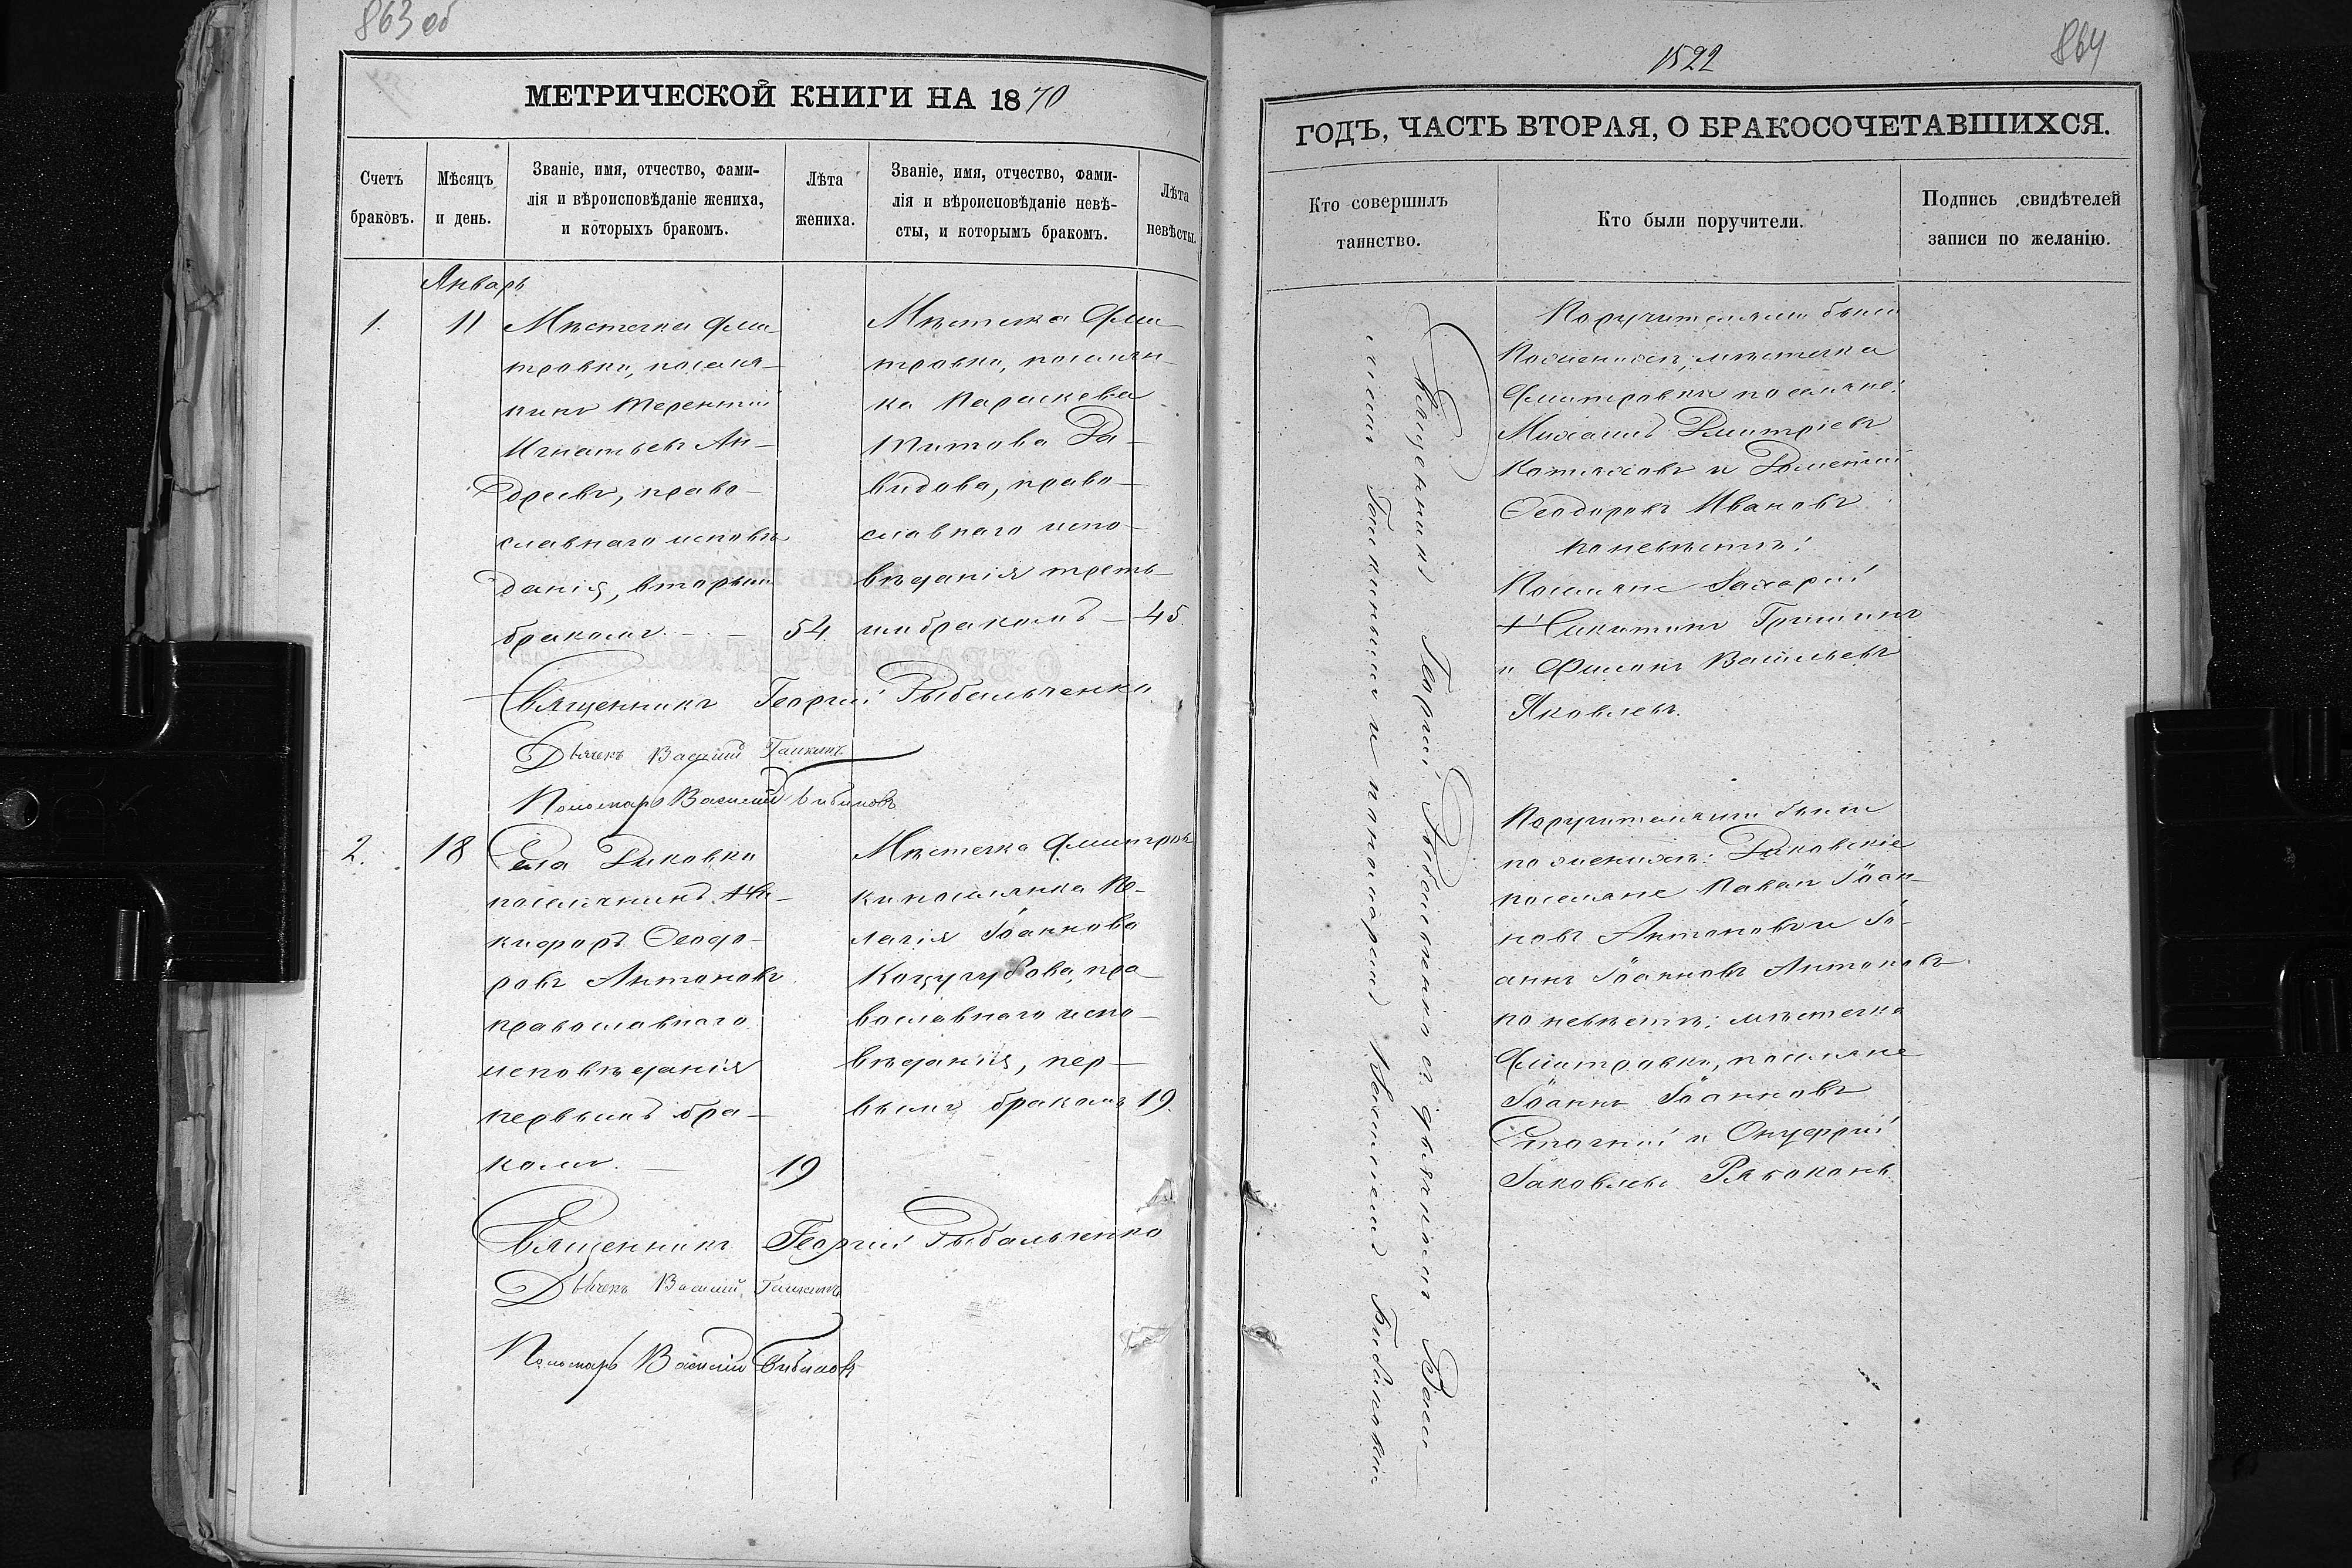 863 об
МЕТРИЧЕСКОЙ КНИГИ НА 1870
Счетъ браковъ.
Мѣсяцъ и день.
Званіе, имя, отчество, фами-
лія и вѣроисповѣданіе жениха,
и которыхъ бракомъ.
Лѣта жениха.
Званіе, имя, отчество, фами-
лія и вѣроисповѣданіе невѣ-
сты, и которымъ бракомъ.
Лѣта невѣсты.
Январь
1. 11
Мѣстечка Дми
тровки, поселя-
нинъ Терентій
Игнатьевъ Ан-
дреевъ, право-
славнаго исповѣ
данія, вторым
бракомъ. - - 54.
Мѣстечка Дми
тровки, поселян
ка Параскева
Титова Да-
видова, право-
славнаго испо-
вѣданія треть-
имъ бракомъ - 45.
Священникъ Георгій Рыбальченко
Дьячекъ Василий
Пономарь Василий
2. 18
Села Диковки
поселянинъ Ни-
кифоръ Ѳеодо-
ровъ Антоновъ
православнаго
исповѣданія
первымъ бра-
комъ. - 19
Мѣстечка Дмитров
ки поселянка Пе-
лагія Іоаннова
Коцугубова, пра
вославнаго испо-
вѣданія, пер-
вымъ бракомъ 19.
Священникъ Георгій Рыбальченко
Дьячекъ Василий
Пономарь Василий
1522
864
ГОДЪ, ЧАСТЬ ВТОРАЯ, О БРАКОСОЧЕТАВШИХСЯ.
Кто совершилъ
таинство.
Кто были поручители.
Подпись свидѣтелей
записи по желанію.
Священникъ Георгій Рыбальченко съ дьячкомъ Васи-
и пономаремъ Василіемъ
Поручителями были
По женихѣ, мѣстечка
Дмитровки поселяне:
Михаилъ Дмитріевъ
и Дометій
Ѳеодоровъ Ивановъ
по невѣстѣ:
Поселяне Захарій
Никитинъ Гришинъ
и Филонъ Васильевъ
Яковлевъ.
Поручителями были
по женихѣ: Диковскіе
поселяне Павелъ Іоан-
новъ Антоновъ и Іо-
аннъ Іоанновъ Антоновъ
по невѣстѣ: мѣстечка
Дмитровки, поселяне
Іоаннъ Іоанновъ
и Онуфрій
Іаковлевъ Рябоконь